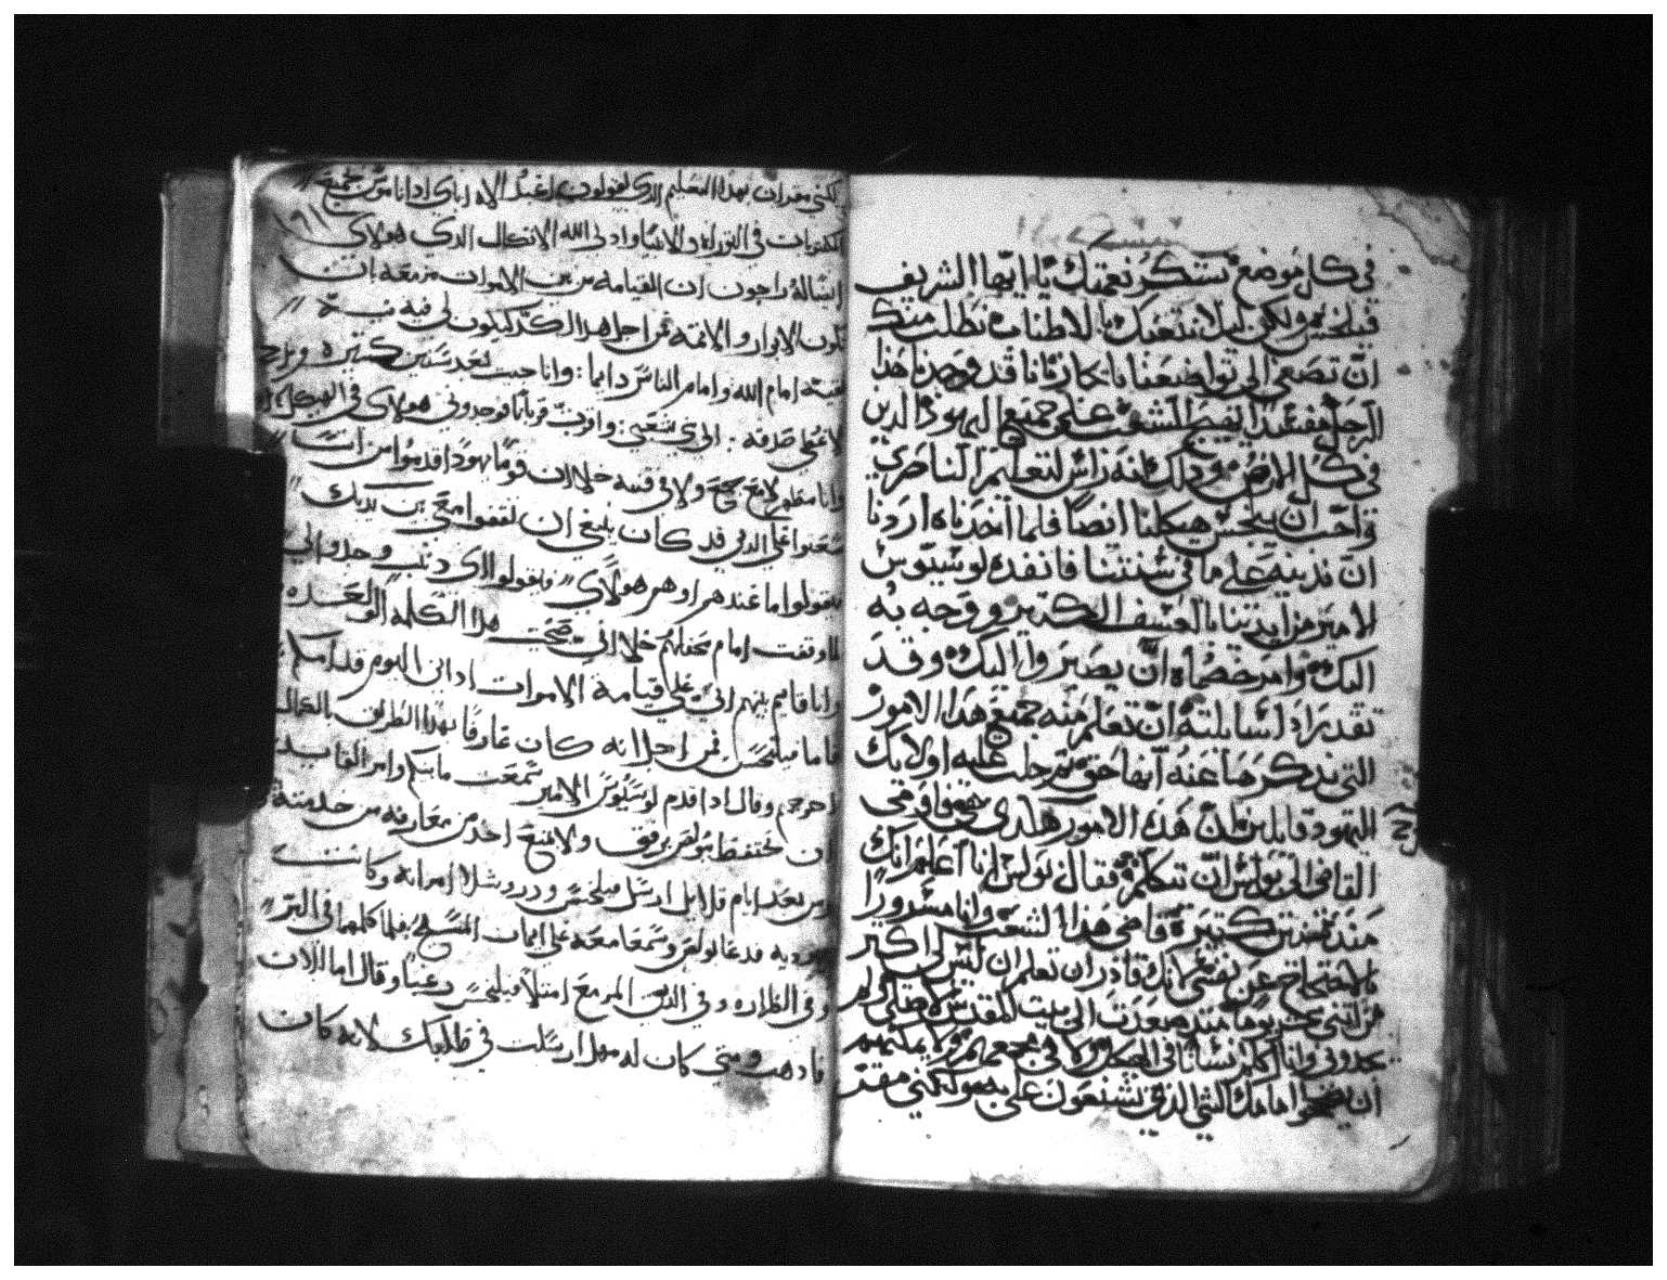 في كل موضع نشكر نعمتك يا ايها الشريف
فيلخس ولكن ليلا نتعبك بالاطناب نطلب منك
ان تصغي الى تواضعنا بايجاز فانا قد وجدنا هذا
الرجل مفسدا يهيج الشغب على جميع اليهود الدين
في كل الارض ودلك انه راس لتعليم الناصري
واحب ان ينجس هيكلنا ايضا فلما اخدناه اردنا
ان ندينه على ما في سنتنا فانقده لوسيوس
الامير من ايدينا بالعسف الكتير ووجه به
اليك وامر خصماه ان يصيروا اليك وقد
تقدر ادا سايلته ان تعلم منه جميع هدا الامور
التي ندكرها عنه انها حق تم جلب عليه اولايك
اليهود قايلين ان هده الامور هكدى هي فاومى
القاضي الى بولس ان تتكلم فقال بولس انا اعلم انك
مند سنين كتيرة قاضي هدا الشعب وانا مسرورا
بالاحتجاج عن نفسي لانك قادر ان تعلم ان ليس لي اكتر
من اتني عشر يوما مند صعدت الى بيت المقدس لاصلي ولم
يجدوني وانا اكلم انسانا في الهيكل ولا في مجمعهم ولا يمكنهم
ان يصححوا امامك الشي الدي يشنعون علي به ولكني مقر
لكني مقر ان بهدا التعليم الدي يقولون اعبد الاه اباي ادا انا مومن بجميع
المكتوبات في التوراه والانبيا واد لي على الله الاتكال الدي هولاي
ايضا له راجون ان القيامه من بين الاموات مزمعه بان
تكون الابرار والاتمه فمن اجل هدا الكد ليكون لي فيه نية
نقيه امام الله وامام الناس دايما وانا حيت بعد سنين كتيره
لاعطي صدقه الى بني شعبي واقرب قربانا فوجدوني هولاى في الهيكل
وانا متطهر لا مع جمع ولا في فتنه خلا ان قوما يهودا قدموا من اسيا
شعبوا علي الدين قد كان ينبغي ان يقفوا معي بين يديك
ويقولوا ما عندهم او هم هولاي فليقولوا اي دنب وجدوا لي
لما وقفت امام محفلهم خلا اني صحت هدا الكلمه الواحده
وانا قايم بينهم اني على قيامة الاموات ادان اليوم قدامكم
فاما فيلخس فمن اجل انه كان عارفا بهدا الطريق بالكمال
اخرهم وقال ادا قدم لوسيوس الامير سمعت ما بينكم وامر القايد
ان يحتفظ بولس برفق ولا يمنع احد من معارفه من خدمته
ومن بعد ايام قلايل ارسل فيلخس ودروسلا امراته وكانت
يهوديه فدعا بولس وسمعا معه على ايمان المسيح فلما كلمهما في البر
وفي الطهاره وفي الدين المزمع امتلا فيلخس رعبا وقال اما الان
فادهب ومتى كان لي مهل ارسلت في طلبك لانه كان